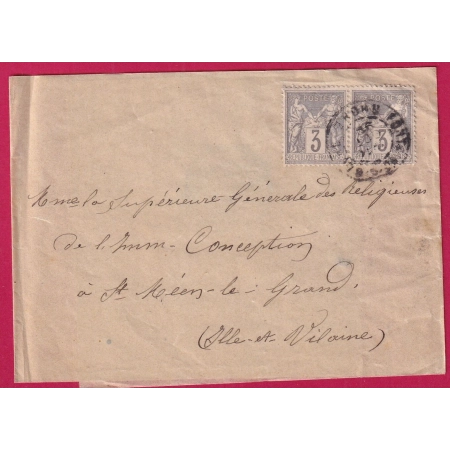 POSTE
3
REPUBLIQUE FRANCAISE
3
Mme la Supérieure Générale des Religieuses
de l'Imm-Conception
à St Méen-le-Grand.
(Ille-et-Vilaine)